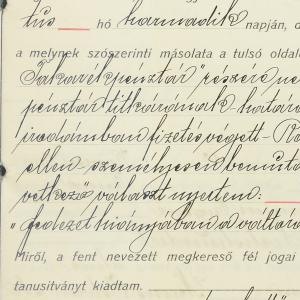 tus hó harmadik napján, d
a melynek szószerinti másolata a tulsó oldalo
Takarékpénztár" részére ne
pénztár titkárának határo
irodámban fizetés végett - Ro
ellen - személyesen bemuta
vetkező" választ nyertem: -
"fedezet hiányában a váltón
Miről, a fent nevezett megkereső fél jogai
tanusitványt kiadtam.